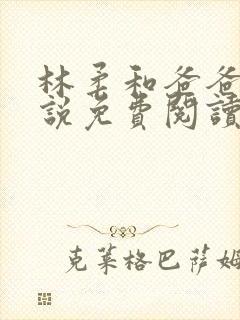 林柔和爸爸
說免費閱讀
克萊格巴薩姆